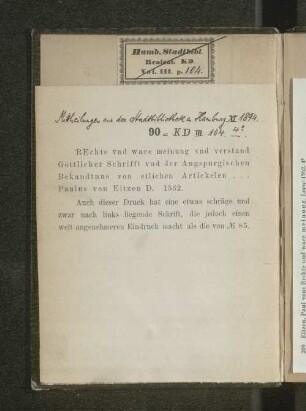 Hamb. Stadtbibl.
Realcat. KD
Vol. III. p. 104.
Mittheilungen aus der Stadtbibliothek zu Hamburg XI 1894.
90 = KD III 104. 4°.
REchte vnd ware meinung vnd verstand
Göttlicher Schrifft vnd der Augspurgischen
Bekandtnus von etlichen Artickelen . . .
Paulus von Eitzen D. 1562.
Auch dieser Druck hat eine etwas schräge und
zwar nach links liegende Schrift, die jedoch einen
weit angenehmeren Eindruck macht als die von № 85.
209 Eitzen, Paul von: Rechte und ware meinung